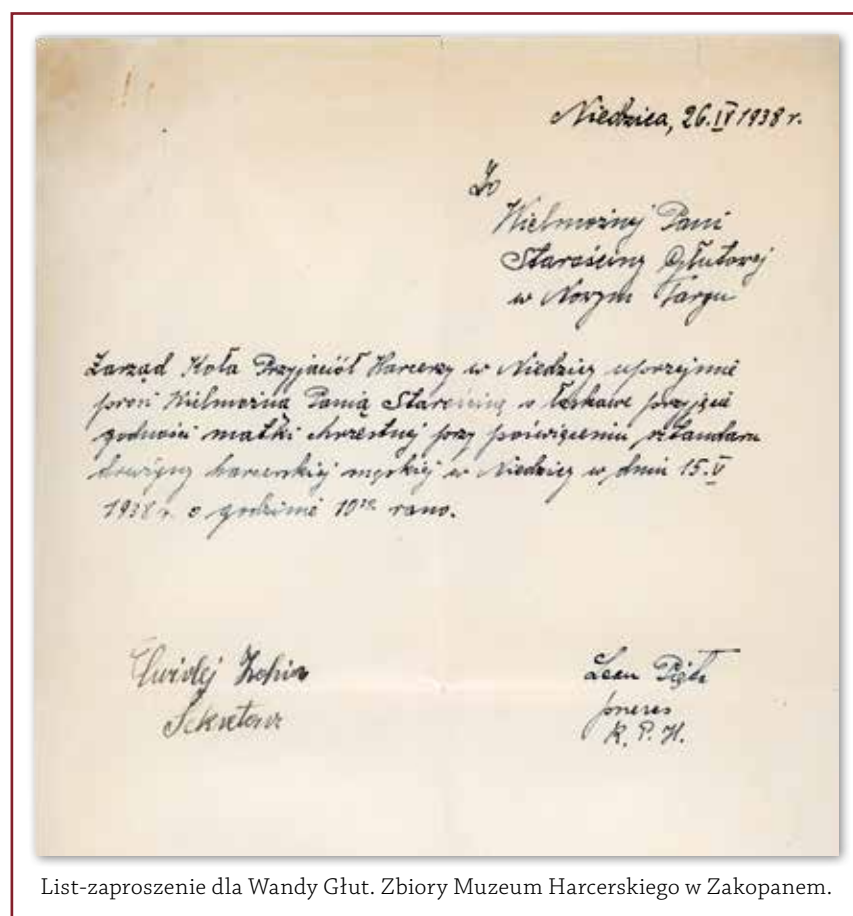 Niedzica, 26.IV 1938 r.
Do
Wielmożnej Pani
Starościny Głutowej
w Nowym Targu
Zarząd Koła Przyjaciół Harcerzy w Niedzicy uprzejmie
prosi Wielmożną Panią Starościnę o łaskawe przyjęcie
godności matki chrzestnej przy poświęceniu sztandaru
drużyny harcerskiej męskiej w Niedzicy w dniu 15.V
1938 r. o godzinie 10 rano.
Zofia
Sekretarz
Leon
prezes
K. P. H.
List-zaproszenie dla Wandy Głut. Zbiory Muzeum Harcerskiego w Zakopanem.